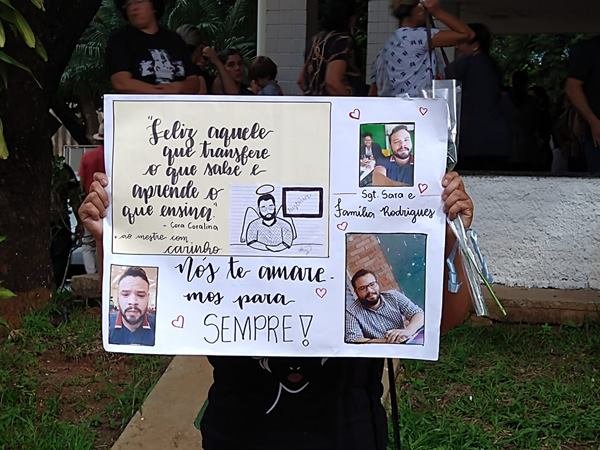 "Feliz aquele
que transfere
o que sabe e
aprende o
que ensina"
- Cora Coralina
ao mestre com
carinho
Sgt. Sara e
Família Rodrigues
Nós te amare-
mos para
SEMPRE!